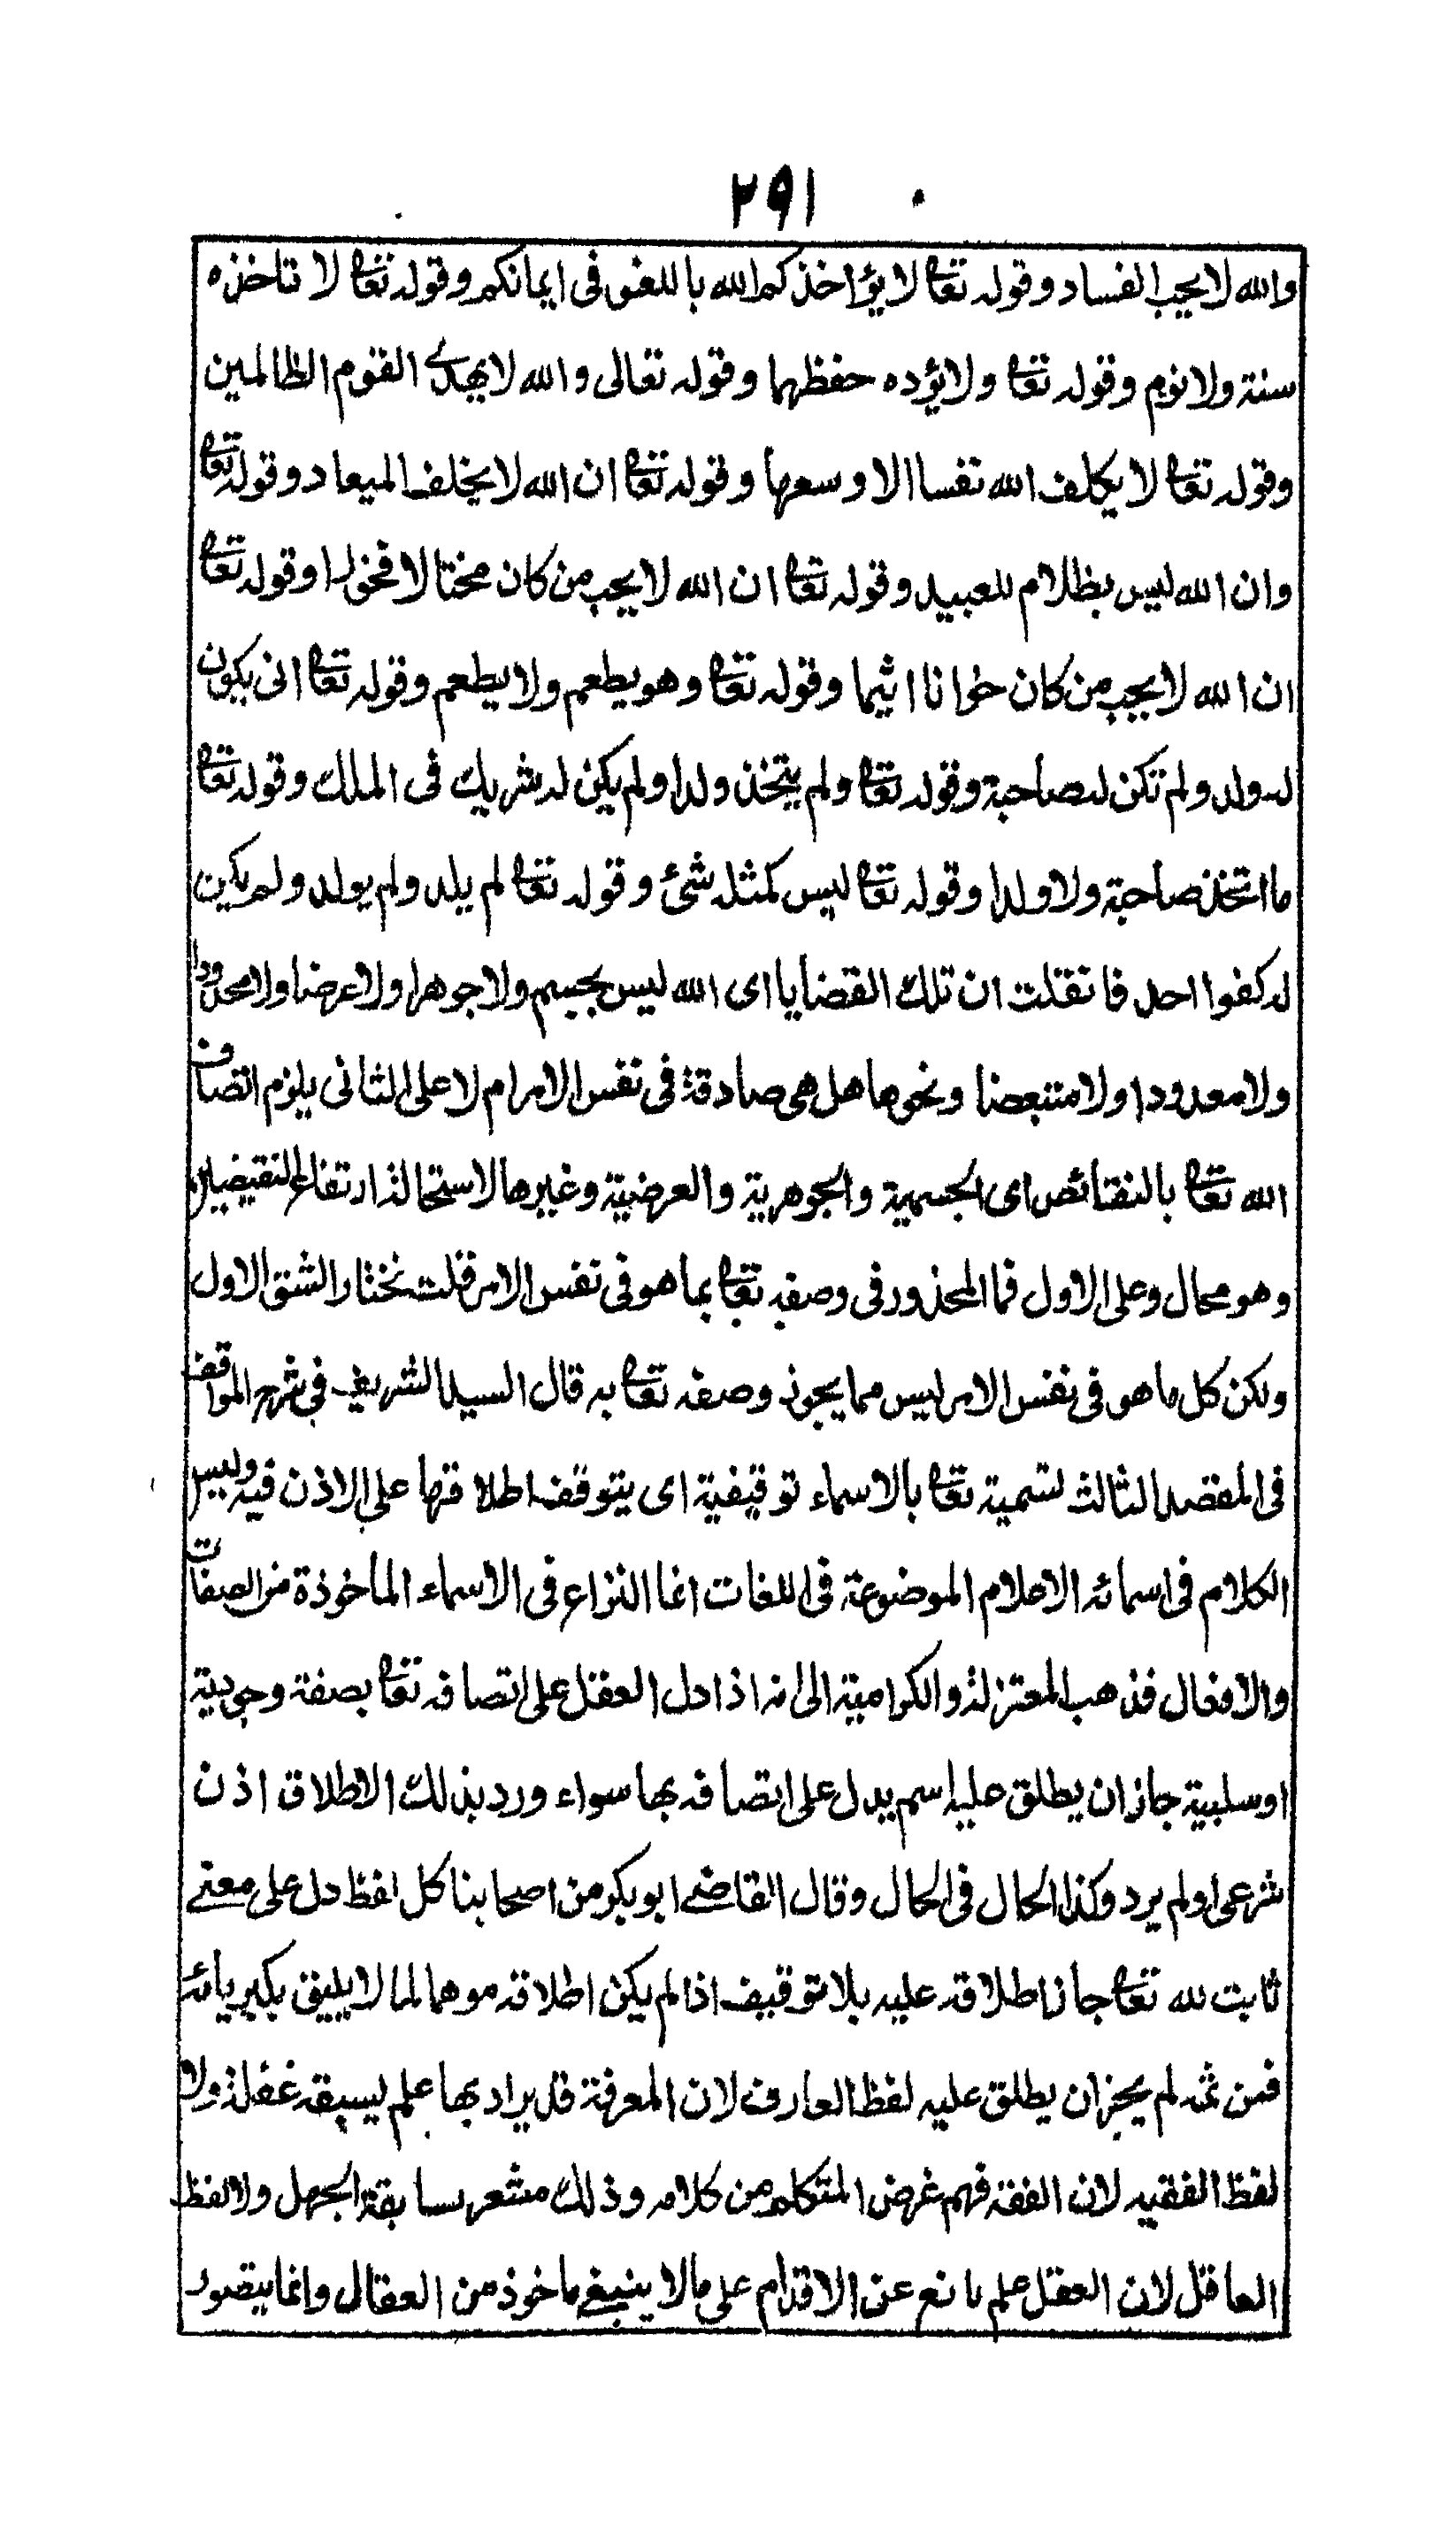 ۲۹۱
والله لا يحب الفساد وقوله تعا لا يؤاخذكم الله باللغو فى ايمانكم وقوله تعا لا تاخذه
سنة ولا نوم وقوله تعا ولا يؤده حفظهما وقوله تعالى والله لا يهدى القوم الظالمين
وقوله تعا لا يكلف الله نفسا الا وسعها وقوله تعا ان الله لا يخلف الميعاد وقوله تعا
وان الله ليس بظلام للعبيد وقوله تعا ان الله لا يحب من كان مختالا فخورا وقوله تعا
ان الله لا يحب من كان خوانا اثيما وقوله تعا وهو يطعم ولا يطعم وقوله تعا انى يكون
له ولد ولم تكن له صاحبة وقوله تعا ولم يتخذ ولدا ولم يكن له شريك فى الملك وقوله تعا
ما اتخذ صاحبة ولا ولدا وقوله تعا ليس كمثله شئ وقوله تعا لم يلد ولم يولد ولم يكن
له كفوا احد فان قلت ان تلك القضايا اى الله ليس بجسم ولا جوهرا ولا عرضا ولا محدودا
ولا معدودا ولا متبعضا ونحوها هل هى صادقة فى نفس الامر ام لا على الثانى يلزم اتصاف
الله تعا بالنقائص اى الجسمية والجوهرية والعرضية وغيرها لاستحالة ارتفاع النقيضين
وهو محال وعلى الاول فما المحذور فى وصفه تعا بما هو فى نفس الامر قلت نختار الشق الاول
ولكن كل ما هو فى نفس الامر ليس مما يجوز وصفه تعا به قال السيد الشريف فى شرح المواقف
فى المقصد الثالث تسميته تعا بالاسماء توقيفية اى يتوقف اطلاقها على الاذن فيه وليس
الكلام فى اسمائه الاعلام الموضوعة فى اللغات انما النزاع فى الاسماء الماخوذة من الصفات
والافعال فذهب المعتزلة والكرامية الى انه اذا دل العقل على اتصافه تعا بصفة وجودية
او سلبية جاز ان يطلق عليه اسم يدل على اتصافه بها سواء ورد بذلك الاطلاق اذن
شرعى او لم يرد وكذا الحال فى الحال وقال القاضى ابو بكر من اصحابنا كل لفظ دل على معنى
ثابت لله تعا جاز اطلاقه عليه بلا توقيف اذا لم يكن اطلاقه موهما لما لا يليق بكبريائه
فمن ثمه لم يجز ان يطلق عليه لفظ العارف لان المعرفة قد يراد بها علم يسبقه غفلة ولا
لفظ الفقيه لان الفقه فهم غرض المتكلم من كلامه وذلك مشعر بسابقة الجهل ولا لفظ
العاقل لان العقل علم مانع عن الاقدام على ما لا ينبغى ماخوذ من العقال وانما يتصور